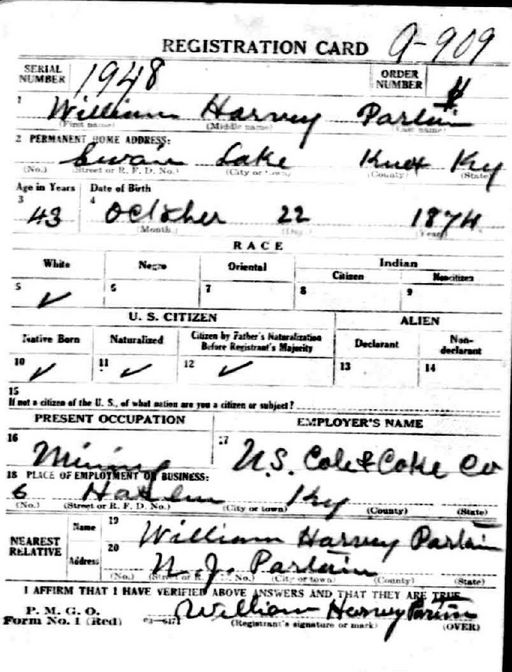 REGISTRATION CARD A-909
SERIAL NUMBER 1948 ORDER NUMBER
1 William Harvey Partain
(First name) (Middle name) (Last name)
2 PERMANENT HOME ADDRESS:
Swain Lake Knox Ky
(No.) (Street or R. F. D. No.) (City or town) (County) (State)
Age in Years Date of Birth
3 43 4 October 22 1874
(Month) (Day) (Year)
RACE
White Negro Oriental Indian
Citizen Noncitizen
5 ✓ 6 7 8 9
U. S. CITIZEN ALIEN
Native Born Naturalized Citizen by Father's Naturalization Before Registrant's Majority Declarant Non-declarant
10 ✓ 11 ✓ 12 ✓ 13 14
15
If not a citizen of the U. S., of what nation are you a citizen or subject?
PRESENT OCCUPATION EMPLOYER'S NAME
16 Mining 17 U.S. Cole & Coke Co
18 PLACE OF EMPLOYMENT OR BUSINESS:
6 Harlan Ky
(No.) (Street or R. F. D. No.) (City or town) (County) (State)
NEAREST RELATIVE Name 19 William Harvey Partain
Address 20 N. J. Partain
(No.) (Street or R. F. D. No.) (City or town) (County) (State)
I AFFIRM THAT I HAVE VERIFIED ABOVE ANSWERS AND THAT THEY ARE TRUE
P. M. G. O.
Form No. 1 (Red) 03-6171 William Harvey Partain
(Registrant's signature or mark) (OVER)